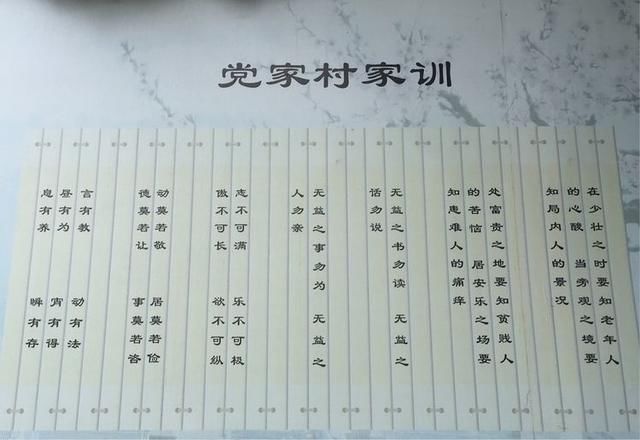 党家村家训
在少壮之时要知老年人
的心酸 当旁观之境要
知局内人的景况
处富贵之地要知贫贱人
的苦恼 居安乐之场要
知患难人的痛痒
无益之书勿读 无益之
话勿说
无益之事勿为 无益之
人勿亲
志不可满 乐不可极
傲不可长 欲不可纵
动莫若敬 居莫若俭
德莫若让 事莫若咨
言有教 动有法
昼有为 宵有得
息有养 瞬有存